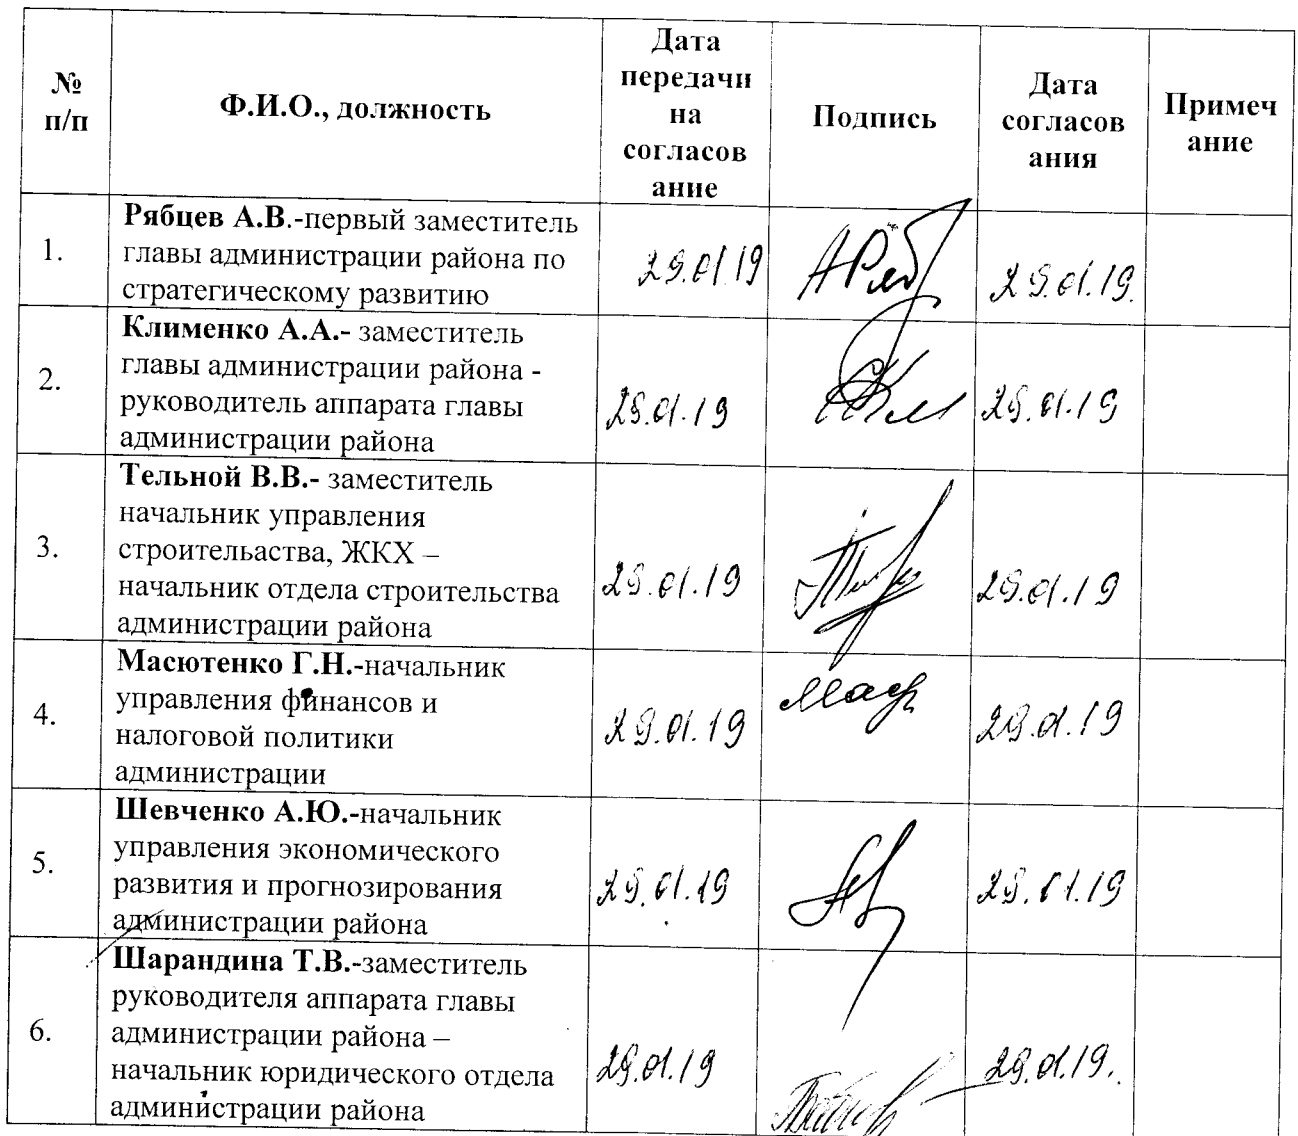 № п/п
Ф.И.О., должность
Дата
передачи
на
согласов
ание
Подпись
Дата
согласов
ания
Примеч
ание
1.
Рябцев А.В.-первый заместитель
главы администрации района по
стратегическому развитию
29.01.19
29.01.19.
2.
Клименко А.А.- заместитель
главы администрации района -
руководитель аппарата главы
администрации района
29.01.19
29.01.19
3.
Тельной В.В.- заместитель
начальник управления
строительаства, ЖКХ –
начальник отдела строительства
администрации района
29.01.19
29.01.19
4.
Масютенко Г.Н.-начальник
управления финансов и
налоговой политики
администрации
29.01.19
29.01.19
5.
Шевченко А.Ю.-начальник
управления экономического
развития и прогнозирования
администрации района
29.01.19
29.01.19
6.
Шарандина Т.В.-заместитель
руководителя аппарата главы
администрации района –
начальник юридического отдела
администрации района
29.01.19
29.01.19.